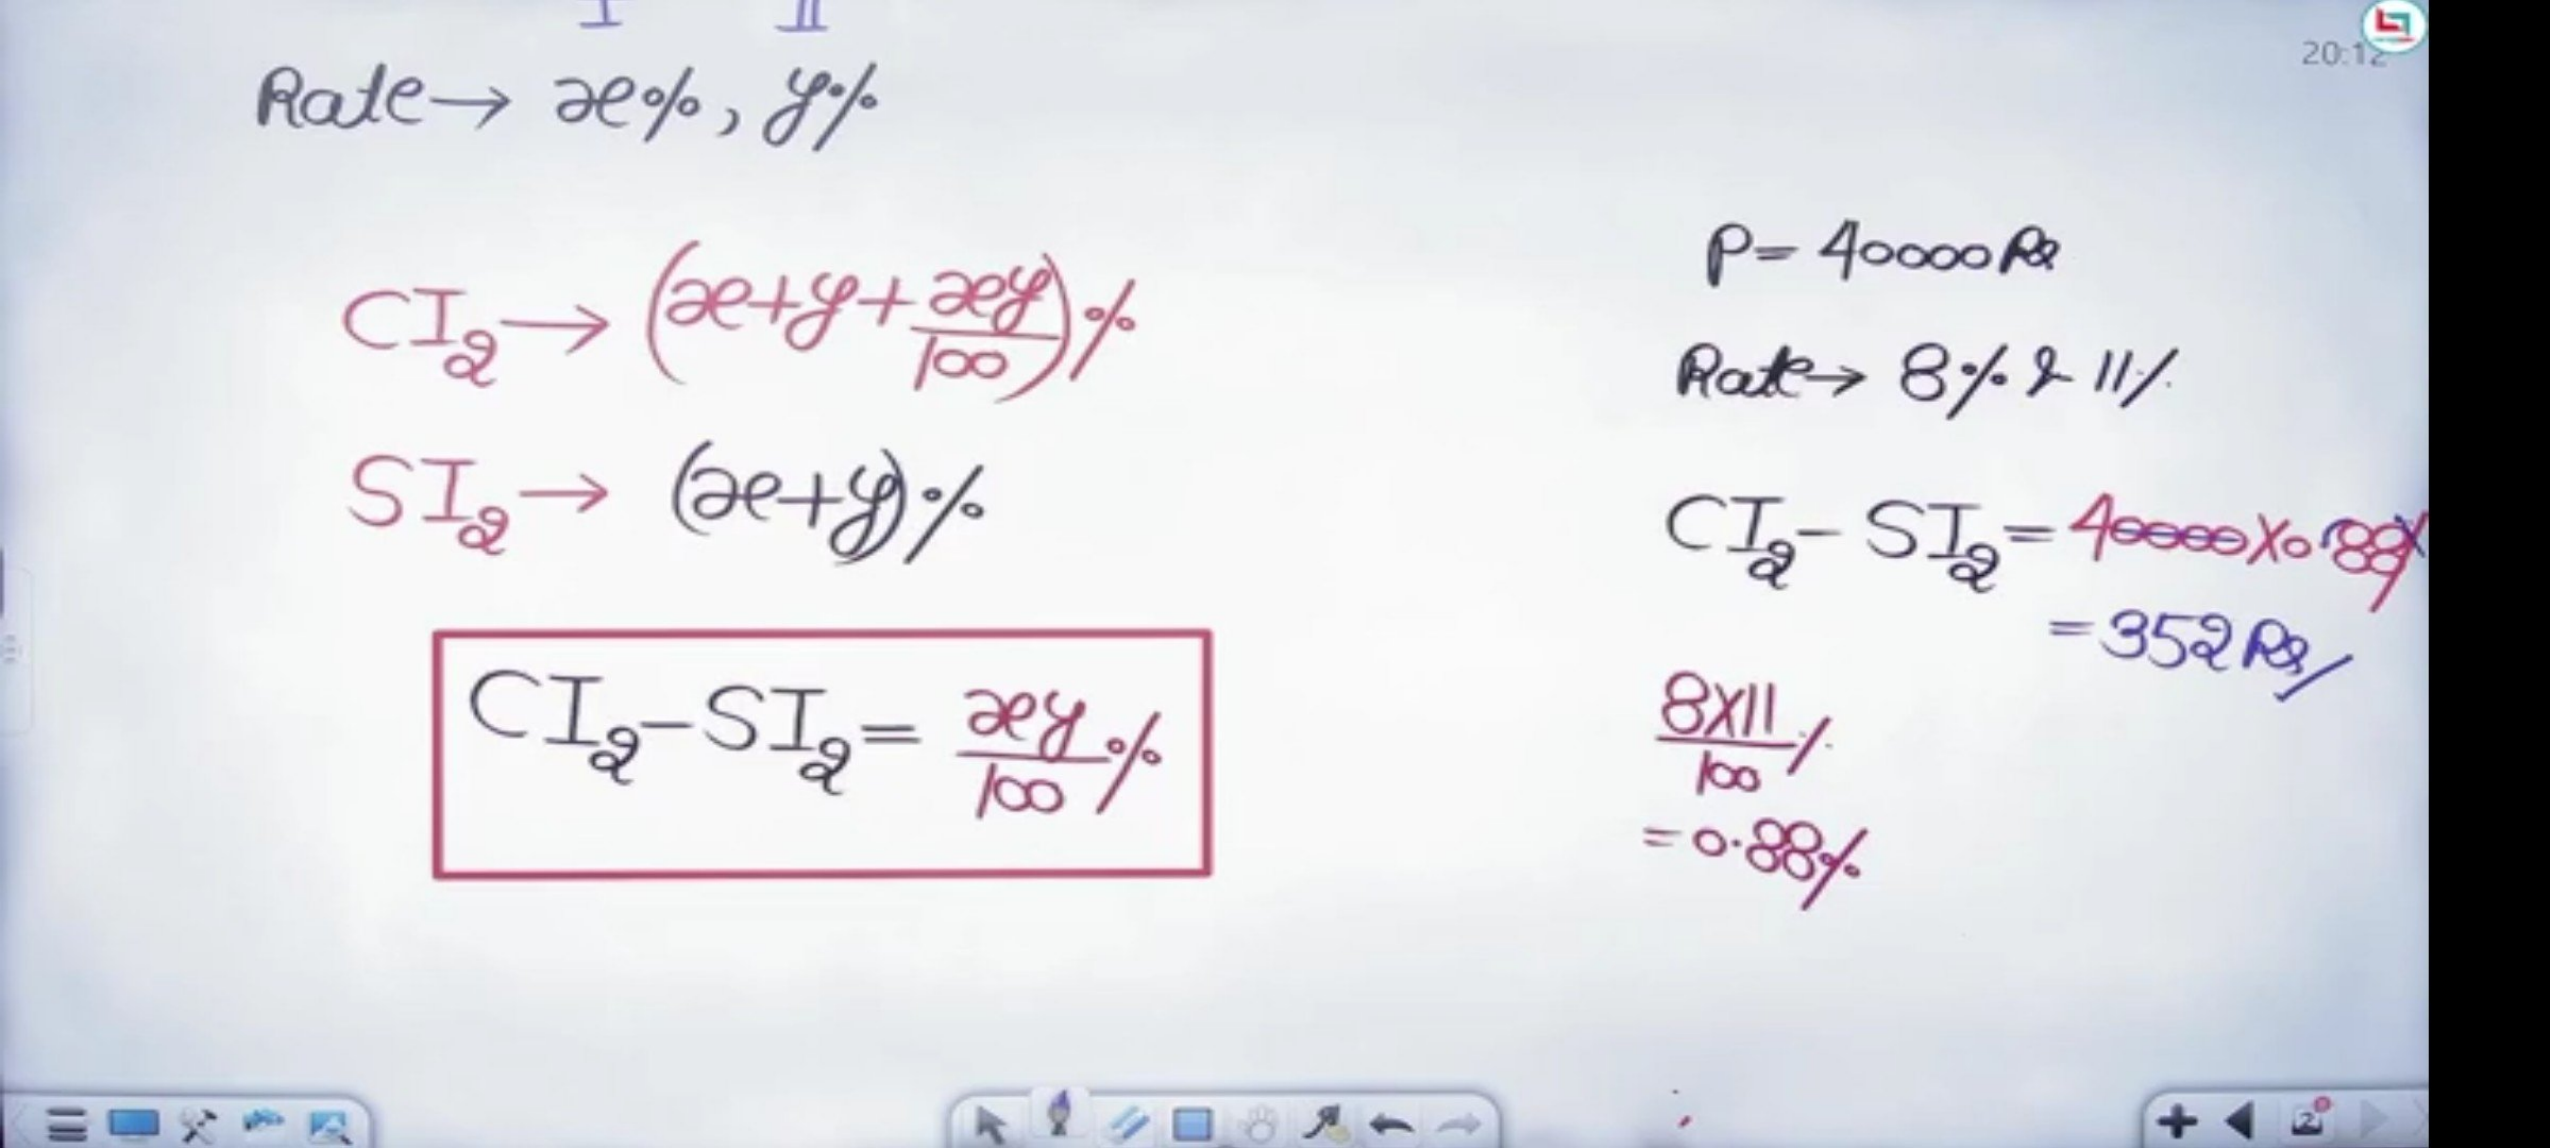 I II
Rate → x%, y%
CI₂ → (x+y+xy/100)%
SI₂ → (x+y)%
CI₂-SI₂= xy/100 %
20:12
P= 40000 Rs
Rate → 8% & 11%
CI₂- SI₂= 40000X0.88%
=352 Rs/
8X11/100 %
=0.88%
2